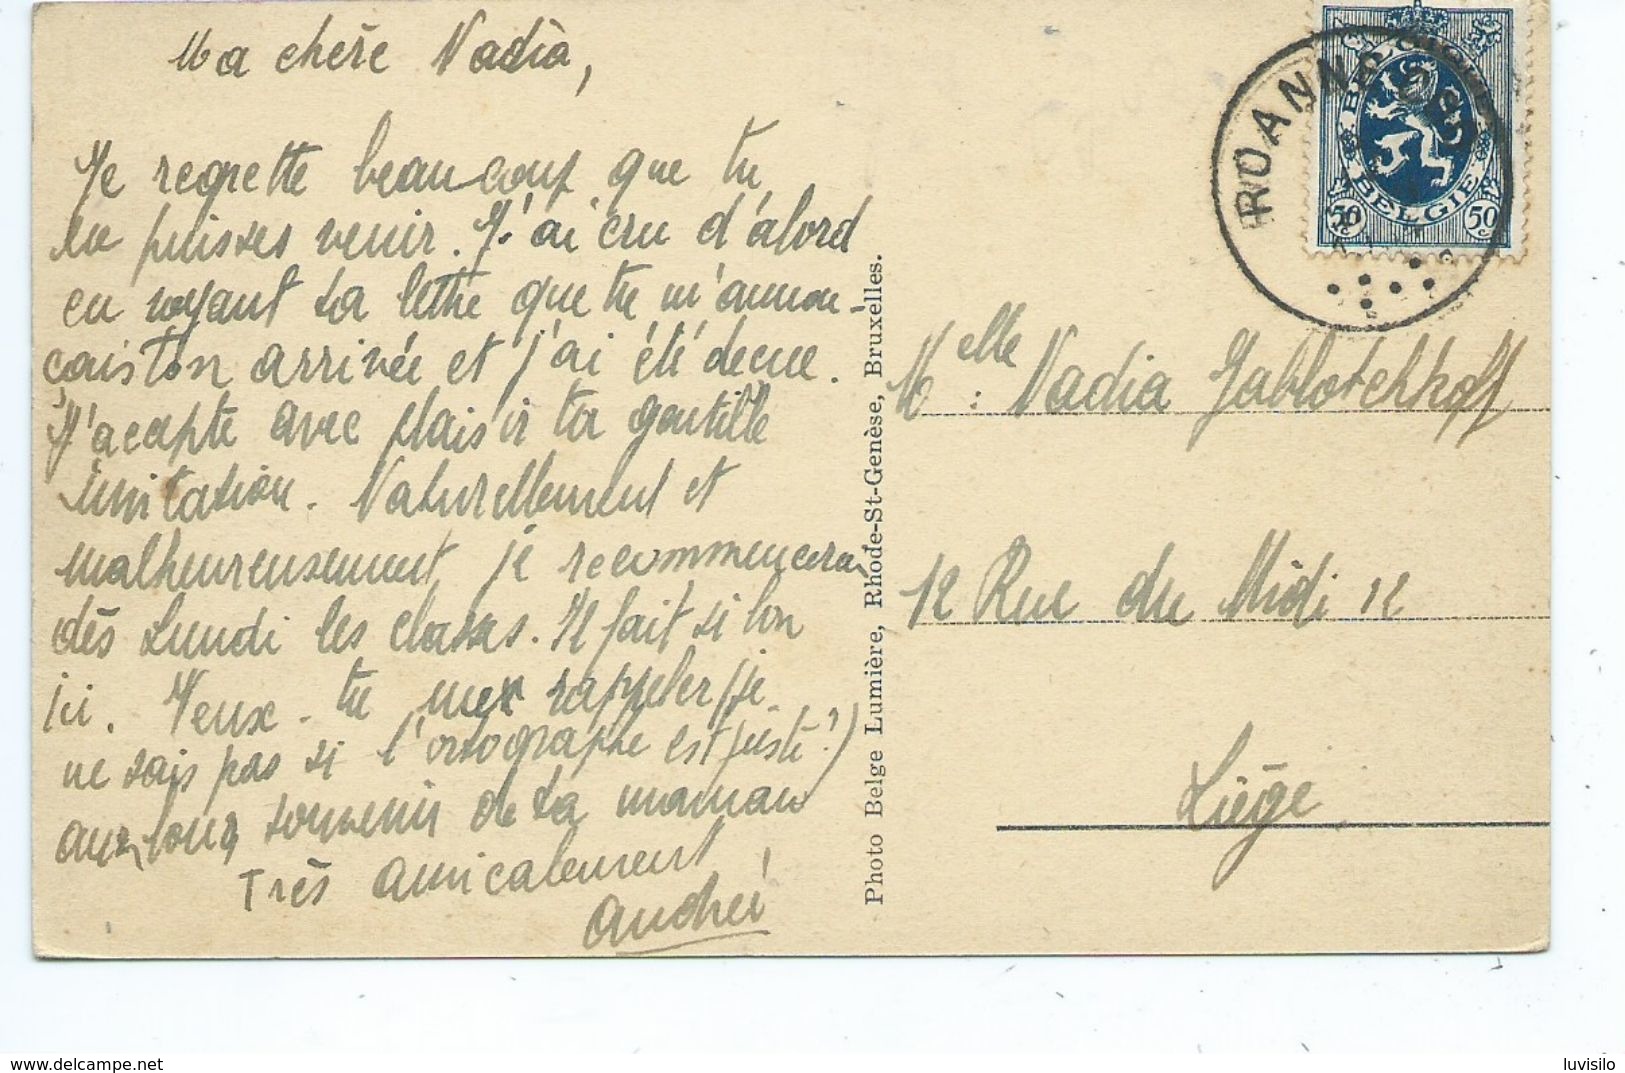 Ma chère Nadia,
Je regrette beaucoup que tu
ne puisses venir. J'ai cru d'abord
en voyant ta lettre que tu m'annon-
çais ton arrivée et j'ai été déçue.
J'acepte avec plaisir ta gentille
invitation. Naturellement et
malheureusement je recommencerai
dès Lundi les classes. Il fait si bon
ici. Veux-tu me rappeler (je
ne sais pas si l'ortographe est juste!)
au bon souvenir de ta maman
Très amicalement,
Andrée
Photo Belge Lumière, Rhode-St-Genèse, Bruxelles.
ROANNE
BELGIQUE
BELGIE
50c 50c
Melle: Nadia Jablotchkoff
12 Rue du Midi 12
Liège
luvisilo